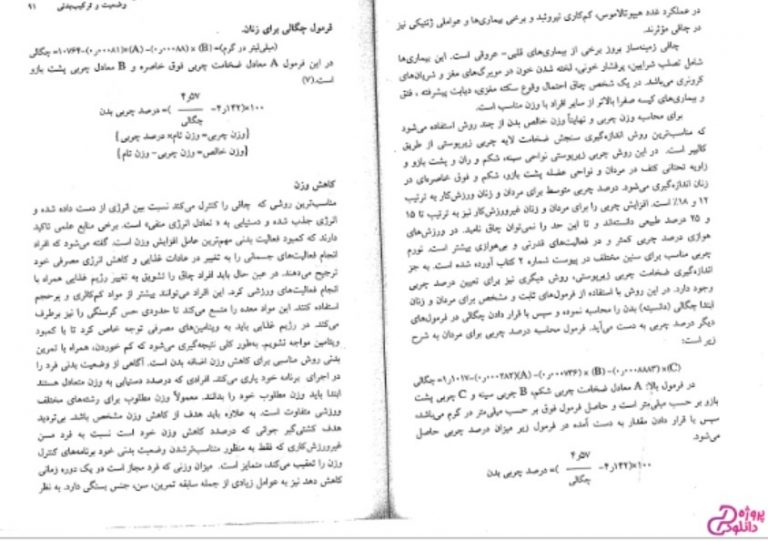 در عملکرد غده هیپوتالاموس، کم‌کاری تیروئید و برخی بیماری‌ها و عواملی ژنتیکی نیز
در چاقی مؤثرند.
چاقی زمینه‌ساز بروز برخی از بیماری‌های قلبی- عروقی است. این بیماری‌ها
شامل تصلب شرایین، پرفشار خونی، لخته شدن خون در مویرگ‌های مغز و شریان‌های
کرونری می‌باشد. در یک شخص چاق احتمال وقوع سکته مغزی، دیابت پیشرفته ، فتق
و بیماری‌های کیسه صفرا بالاتر از سایر افراد با وزن مناسب است.
برای محاسبه وزن چربی و نهایتاً وزن خالص بدن از چند روش استفاده می‌شود
که مناسب‌ترین روش اندازه‌گیری سنجش ضخامت لایه چربی زیرپوستی از طریق
کالیپر است. در این روش چربی زیرپوستی نواحی سینه، شکم و ران و پشت بازو و
زاویه تحتانی کتف در مردان و نواحی عضله پشت بازو، شکم و فوق خاصره‌ای در
زنان اندازه‌گیری می‌شود. درصد چربی متوسط برای مردان و زنان ورزش‌کار به ترتیب
۱۲ و ۱۸٪ است. افزایش چربی را برای مردان و زنان غیرورزش‌کار نیز به ترتیب تا ۱۵
و ۲۵ درصد طبیعی دانسته‌اند و تا این حد را نمی‌توان چاق نامید. در ورزش‌های
هوازی درصد چربی کمتر و در فعالیت‌های قدرتی و بی‌هوازی بیشتر است. نورم
چربی مناسب برای سنین مختلف در پیوست شماره ۲ کتاب آورده شده است. به جز
اندازه‌گیری ضخامت چربی زیرپوستی، روش دیگری نیز برای تعیین درصد چربی
وجود دارد. در این روش با استفاده از فرمول‌های ثابت و مشخص برای مردان و زنان
ابتدا چگالی (دانسیته) بدن را محاسبه نموده و سپس با قرار دادن چگالی در فرمول‌های
دیگر درصد چربی به دست می‌آید. فرمول محاسبه درصد چربی برای مردان به شرح
زیر است:
در فرمول بالا: A معادل ضخامت چربی شکم، B چربی سینه و C چربی پشت
بازو بر حسب میلی‌متر است و حاصل فرمول فوق بر حسب میلی‌متر در گرم می‌باشد،
سپس با قرار دادن مقدار به دست آمده در فرمول زیر میزان درصد چربی حاصل
می‌شود.
۵۷ر۴
۱۰۰×(۱۴۲ر۴- ــــــ )= درصد چربی بدن
چگالی
وضعیت و ترکیب‌بدنی ۹۱
فرمول چگالی برای زنان.
(میلی‌لیتر در گرم)= چگالی
در این فرمول A معادل ضخامت چربی فوق خاصره و B معادل چربی پشت بازو
است.(۷)
۵۷ر۴
۱۰۰×(۱۴۲ر۴- ــــــ )= درصد چربی بدن
چگالی
{وزن چربی= وزن تام× درصد چربی}
{وزن خالص= وزن چربی- وزن تام}
کاهش وزن
مناسب‌ترین روشی که چاقی را کنترل می‌کند نسبت بین انرژی از دست داده شده و
انرژی جذب شده و دستیابی به « تعادل انرژی منفی» است. برخی منابع علمی تاکید
دارند که کمبود فعالیت بدنی مهم‌ترین عامل افزایش وزن است. گفته می‌شود که افراد
انجام فعالیت‌های جسمانی را به تغییر در عادات غذایی و کاهش انرژی مصرفی خود
ترجیح می‌دهند. در عین حال باید افراد چاق را تشویق به تغییر رژیم غذایی همراه با
انجام فعالیت‌های ورزشی کرد. این افراد می‌توانند بیشتر از مواد کم‌کالری و پرحجم
استفاده کنند. این مواد معده را متسع می‌کند تا حدودی حس گرسنگی را نیز برطرف
می‌کند. در رژیم غذایی باید به ویتامین‌های مصرفی توجه خاص کرد تا با کمبود
ویتامین مواجه نشویم. به‌طور کلی نتیجه‌گیری می‌شود که کم خوردن، همراه با تمرین
بدنی روش مناسبی برای کاهش وزن اضافه بدن است. آگاهی از وضعیت بدنی فرد را
در اجرای برنامه خود یاری می‌کند. افرادی که درصدد دستیابی به وزن متعادل هستند
ابتدا باید وزن مطلوب خود را بدانند. معمولاً وزن مطلوب برای رشته‌های مختلف
ورزشی متفاوت است. به علاوه باید هدف از کاهش وزن مشخص باشد. بی‌تردید
هدف کشتی‌گیر جوانی که درصدد کاهش وزن خود است نسبت به فرد مسن
غیرورزش‌کاری که فقط به منظور متناسب‌ترشدن وضعیت بدنی خود برنامه‌های کاهش
وزن را تعقیب می‌کند، متمایز است. میزان وزنی که فرد مجاز است در یک دوره زمانی
کاهش دهد نیز به عوامل زیادی از جمله سابقه تمرین، سن، جنس بستگی دارد. به نظر
پروژه
دانلود